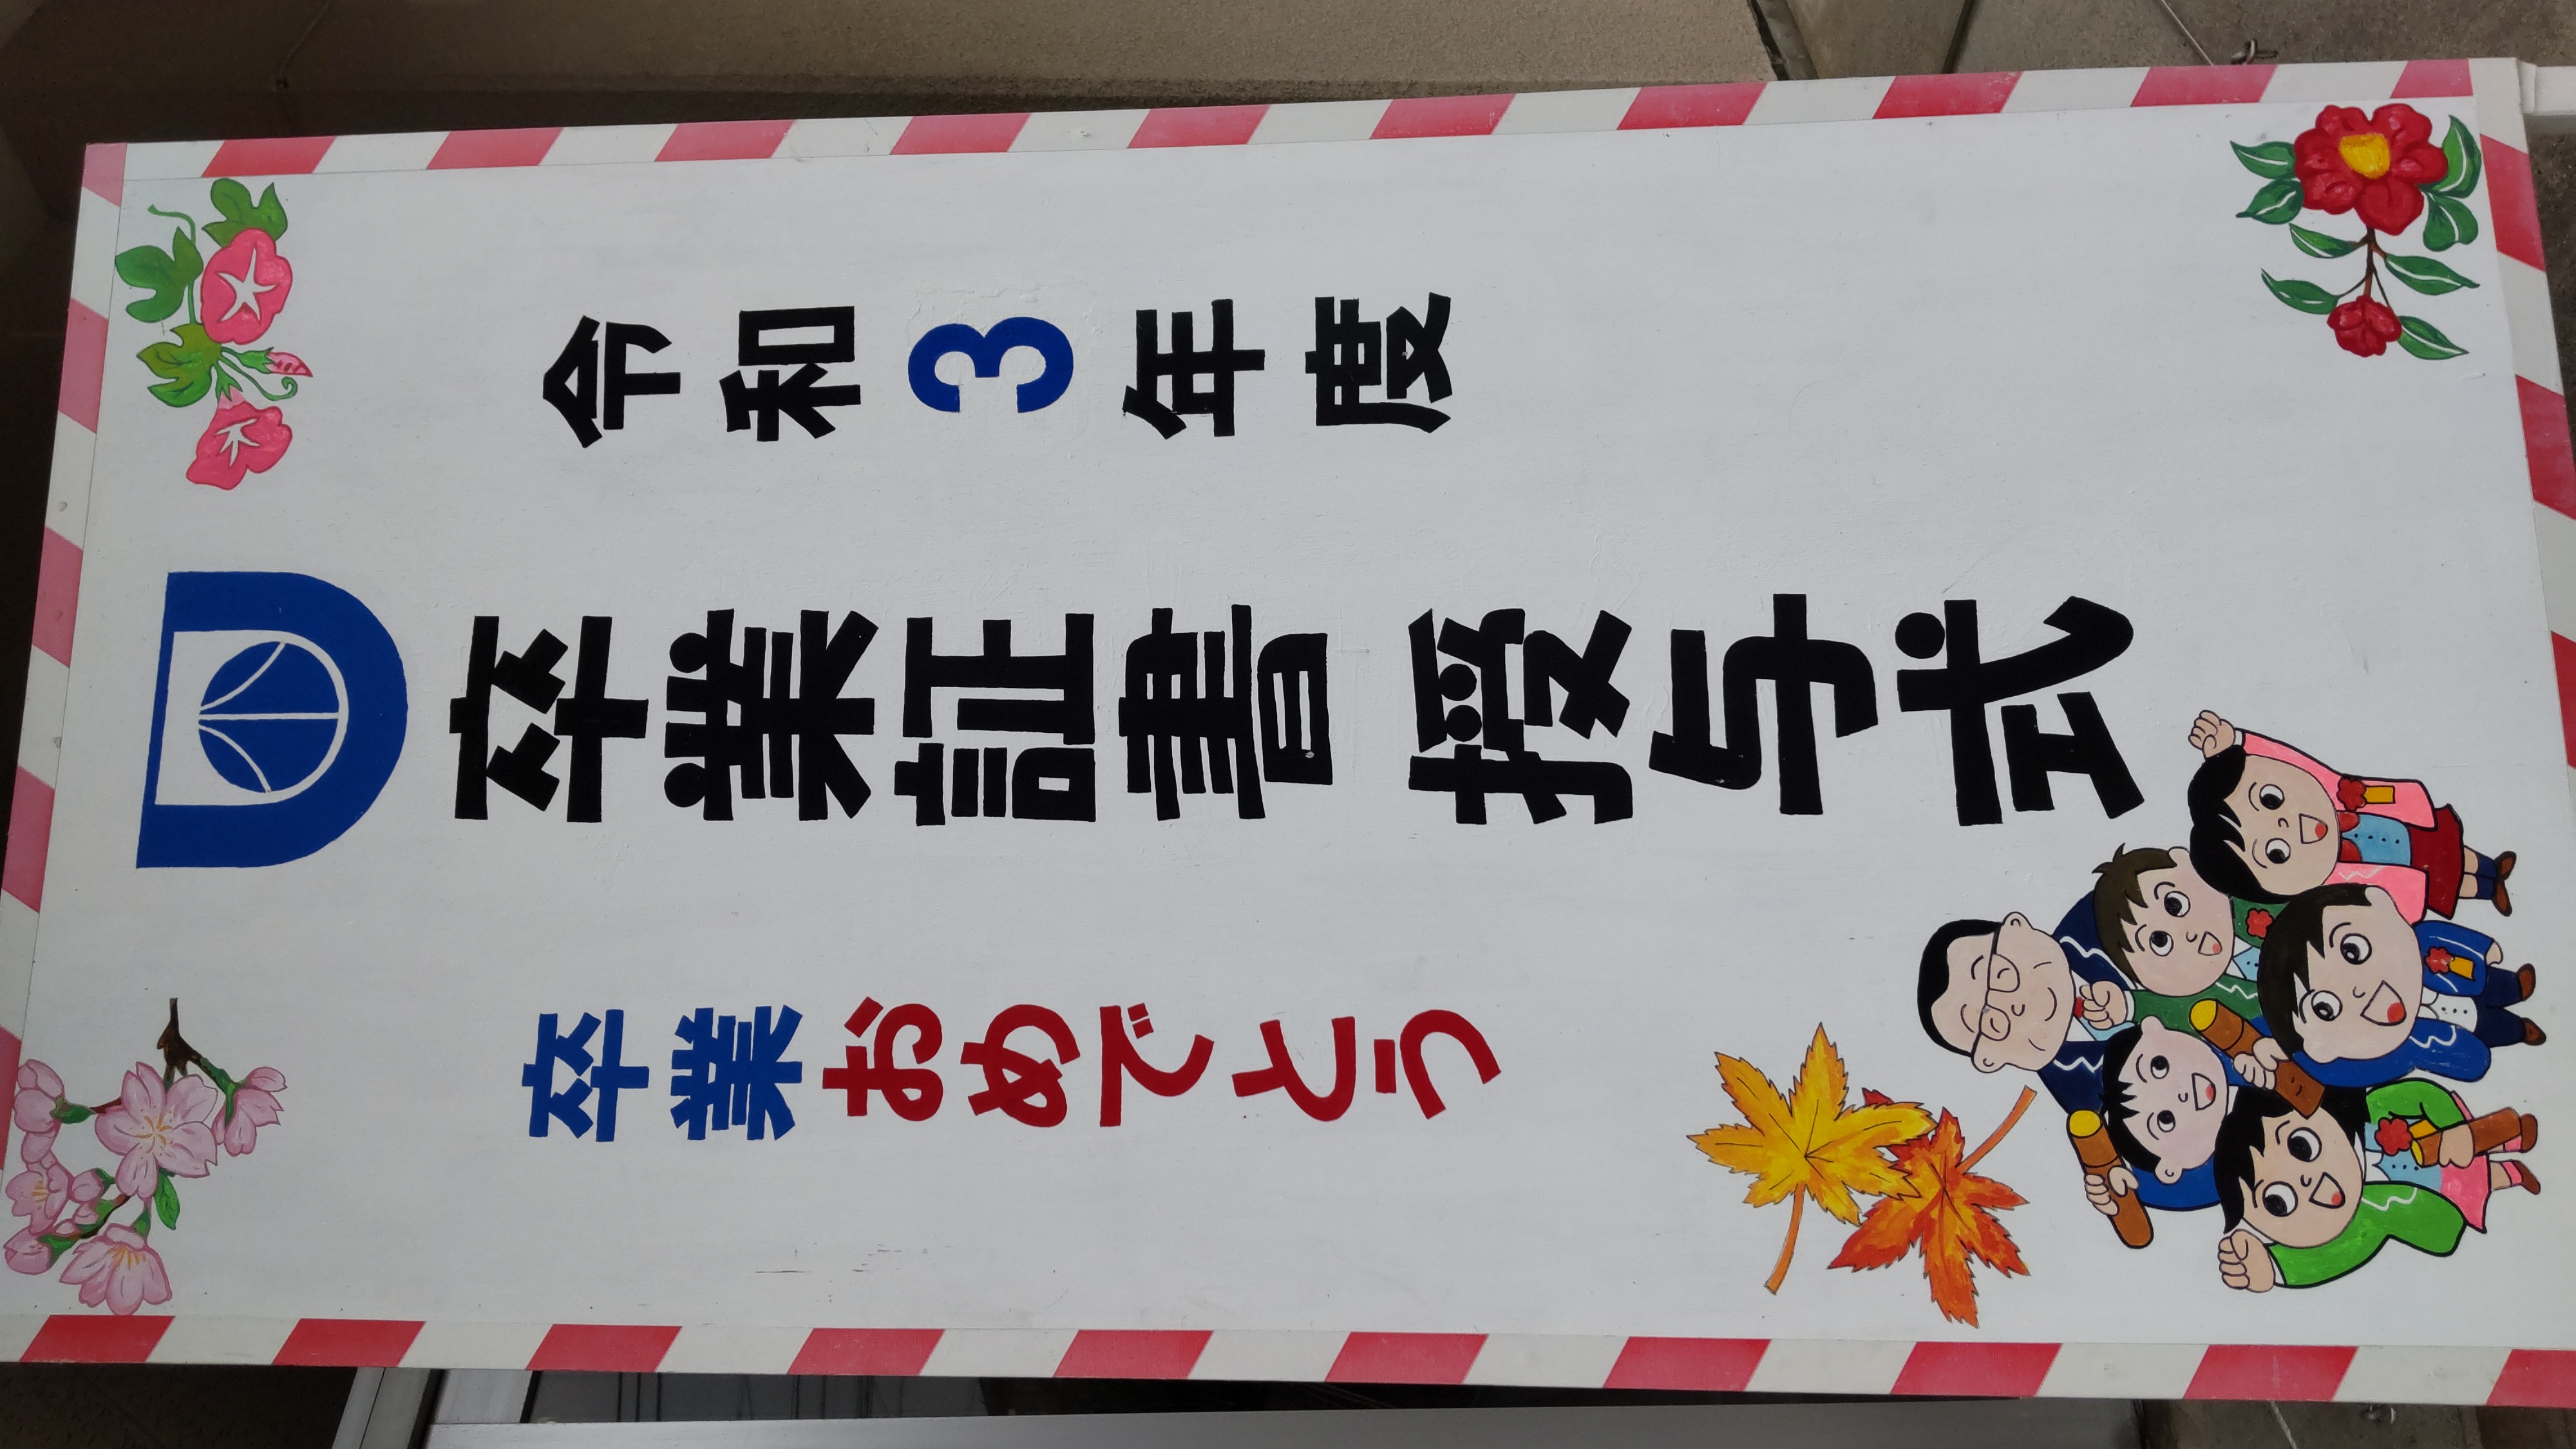 令和3年度
卒業証書授与式
卒業おめでとう